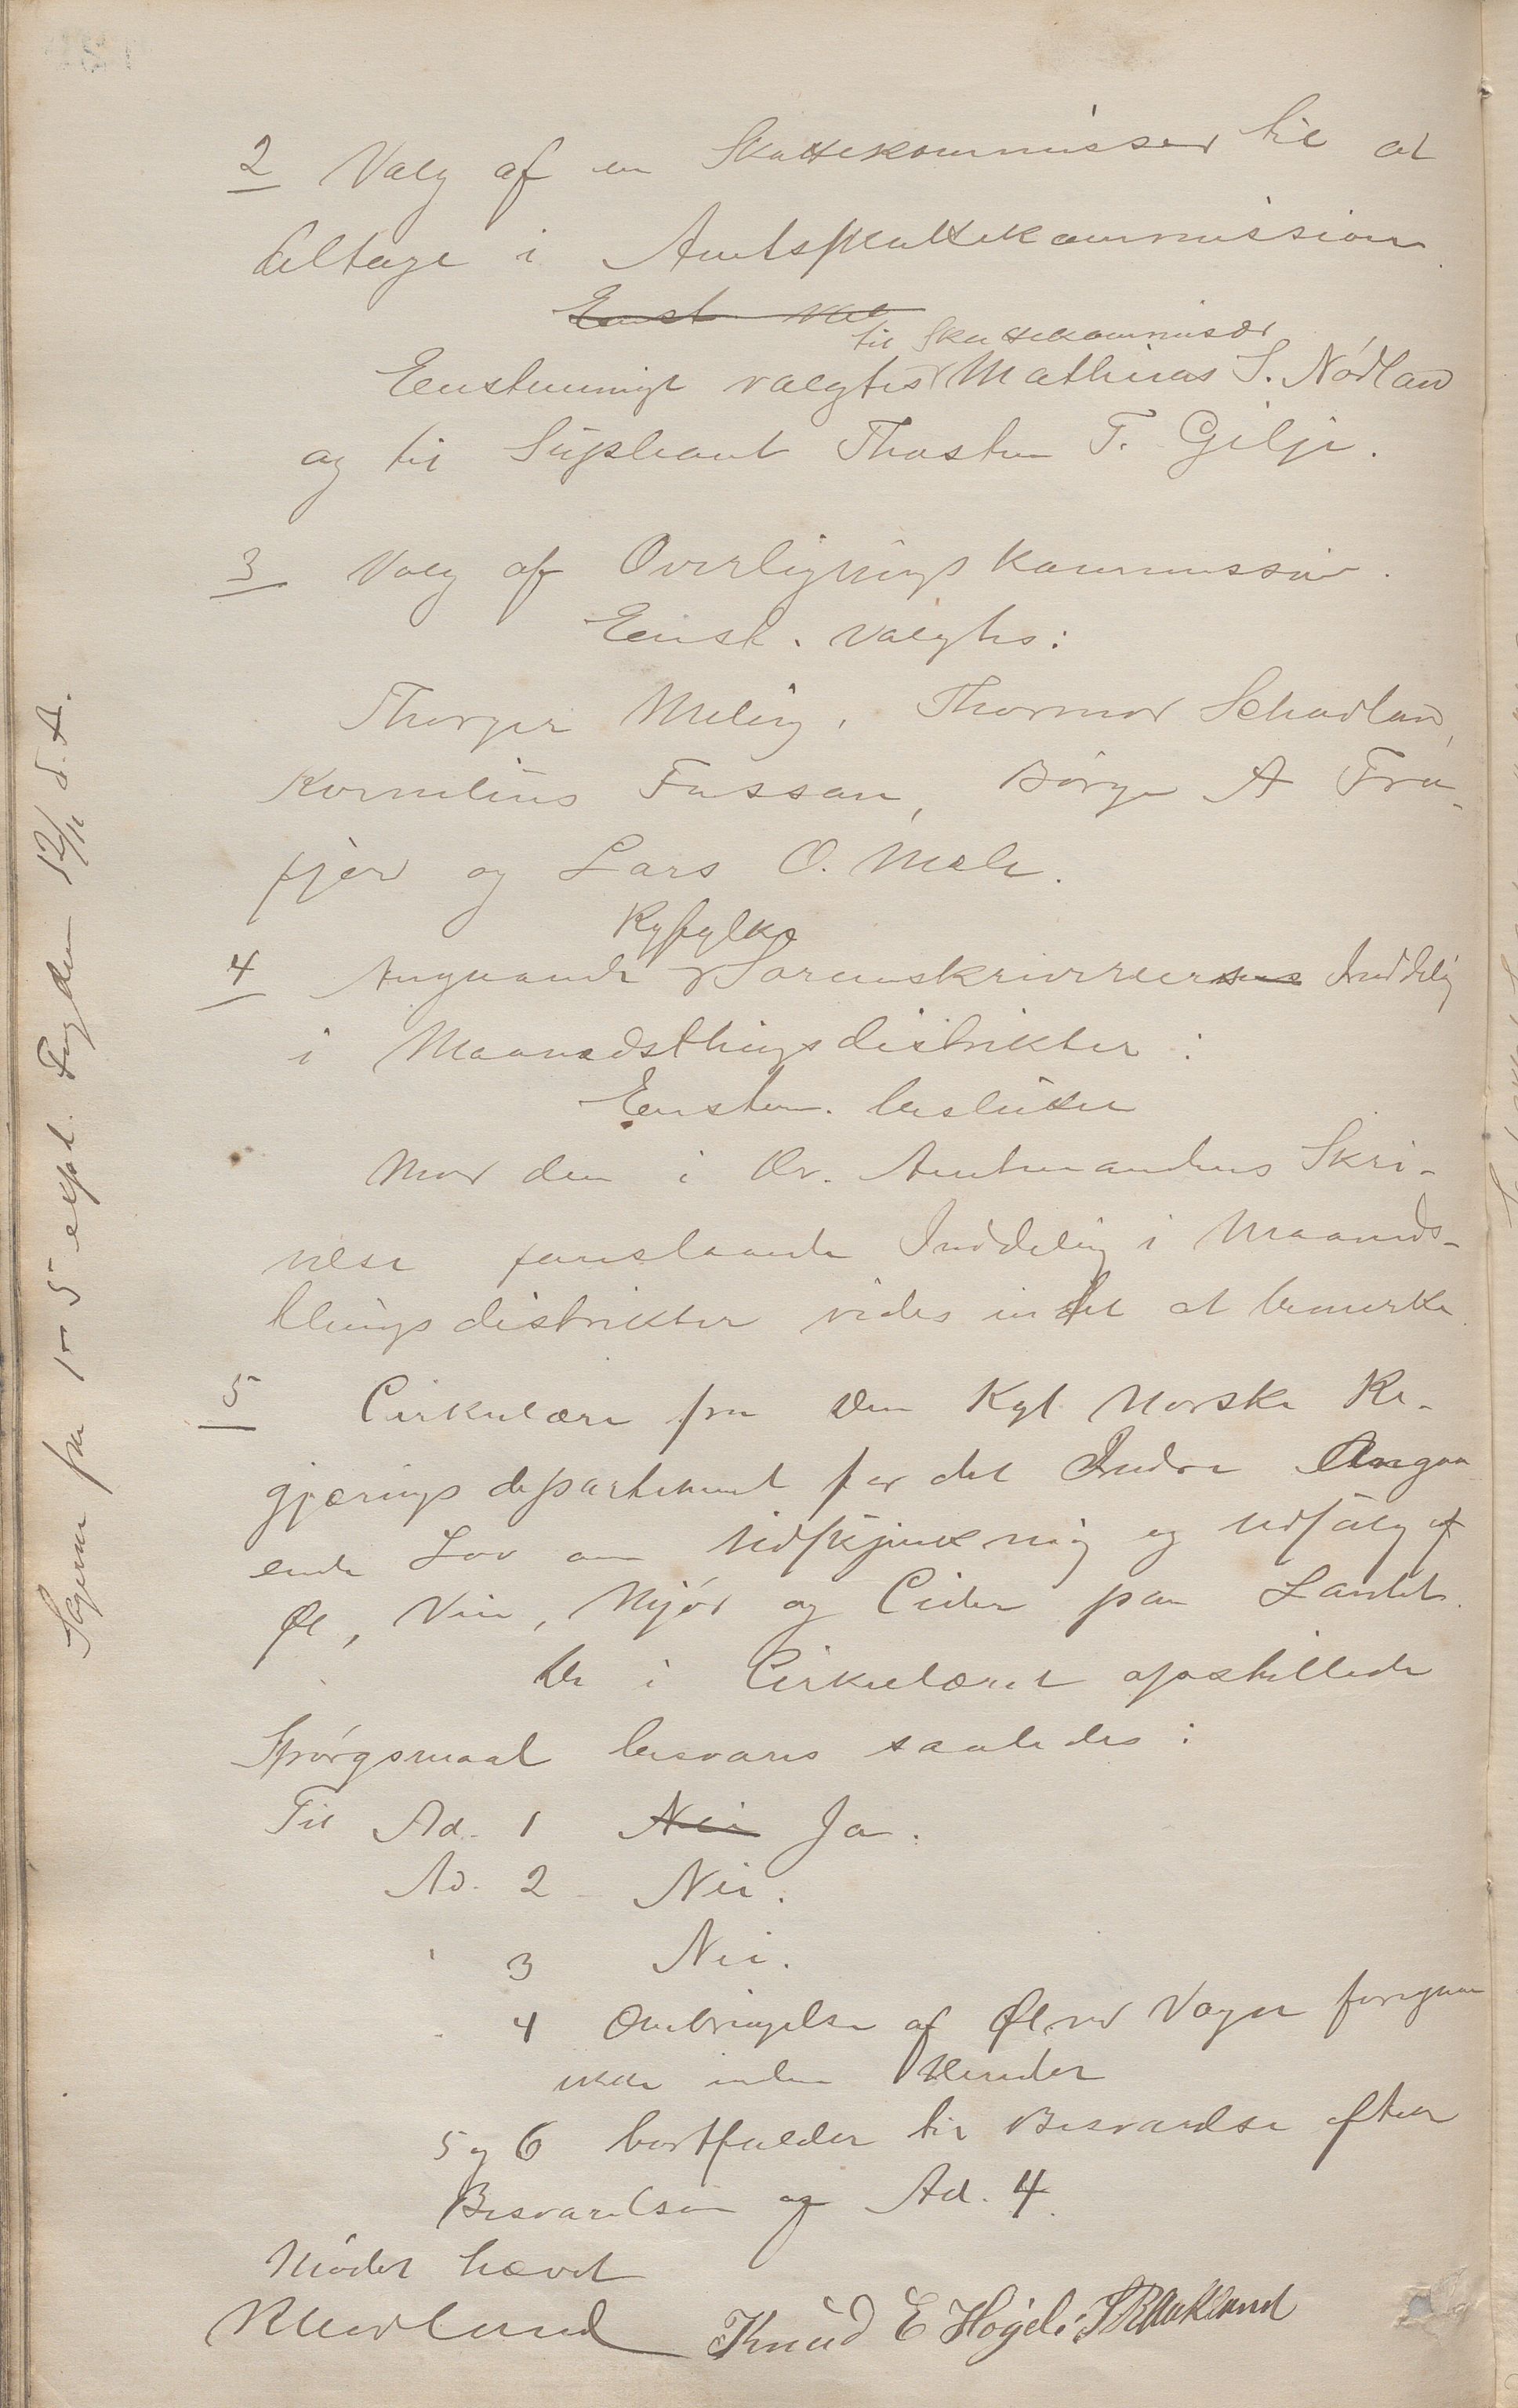 2 Valg af en Skattekommissær til at
deltage i Amtsskattekommission.
Enst. val
til Skattekommisær
Eenstemmigt valgtes Mathias S. Nödland
og til Supleant Thosten T. Gilje.
3 Valg af Overligningskommission.
Eenst. valgtes:
Thorger Meling, Thormod Schadland,
Kornelius Fassan, Börge A Fra-
fjor og Lars O. Mæle.
Ryfylke
4 Angaaende Sorenskriverier Inddeling
i Maanedsthingsdistrikter:
Eenstem. besluttet
Mod den i Hr. Amtmandens Skri-
velse foreslaaede Inddeling i Maaneds-
thingsdistrikter vides intet at bemærke.
5 Cirkulære fra Den Kgl Norske Re-
gjærings departement for det Indre Angaa
ende Lov om Udskjænkning og Udsalg af
Øl, Vin, Mjöd og Cider paa Landet.
De i Cirkulæret opstillede
Spörgsmaal besvares saaledes:
Til Ad. 1 Nei Ja.
Ad. 2 Nei.
" 3 Nei.
" 4 Ombringelse af Øl ved Vogn foregaar
ikke inden Herredet
5 og 6 bortfalder til Besvarelse efter
Besvarelsen og Ad. 4.
Mödet hævet
Knud E Högeli
Sagerne fra 1-5 expd. Fogden 12/11 d.A.